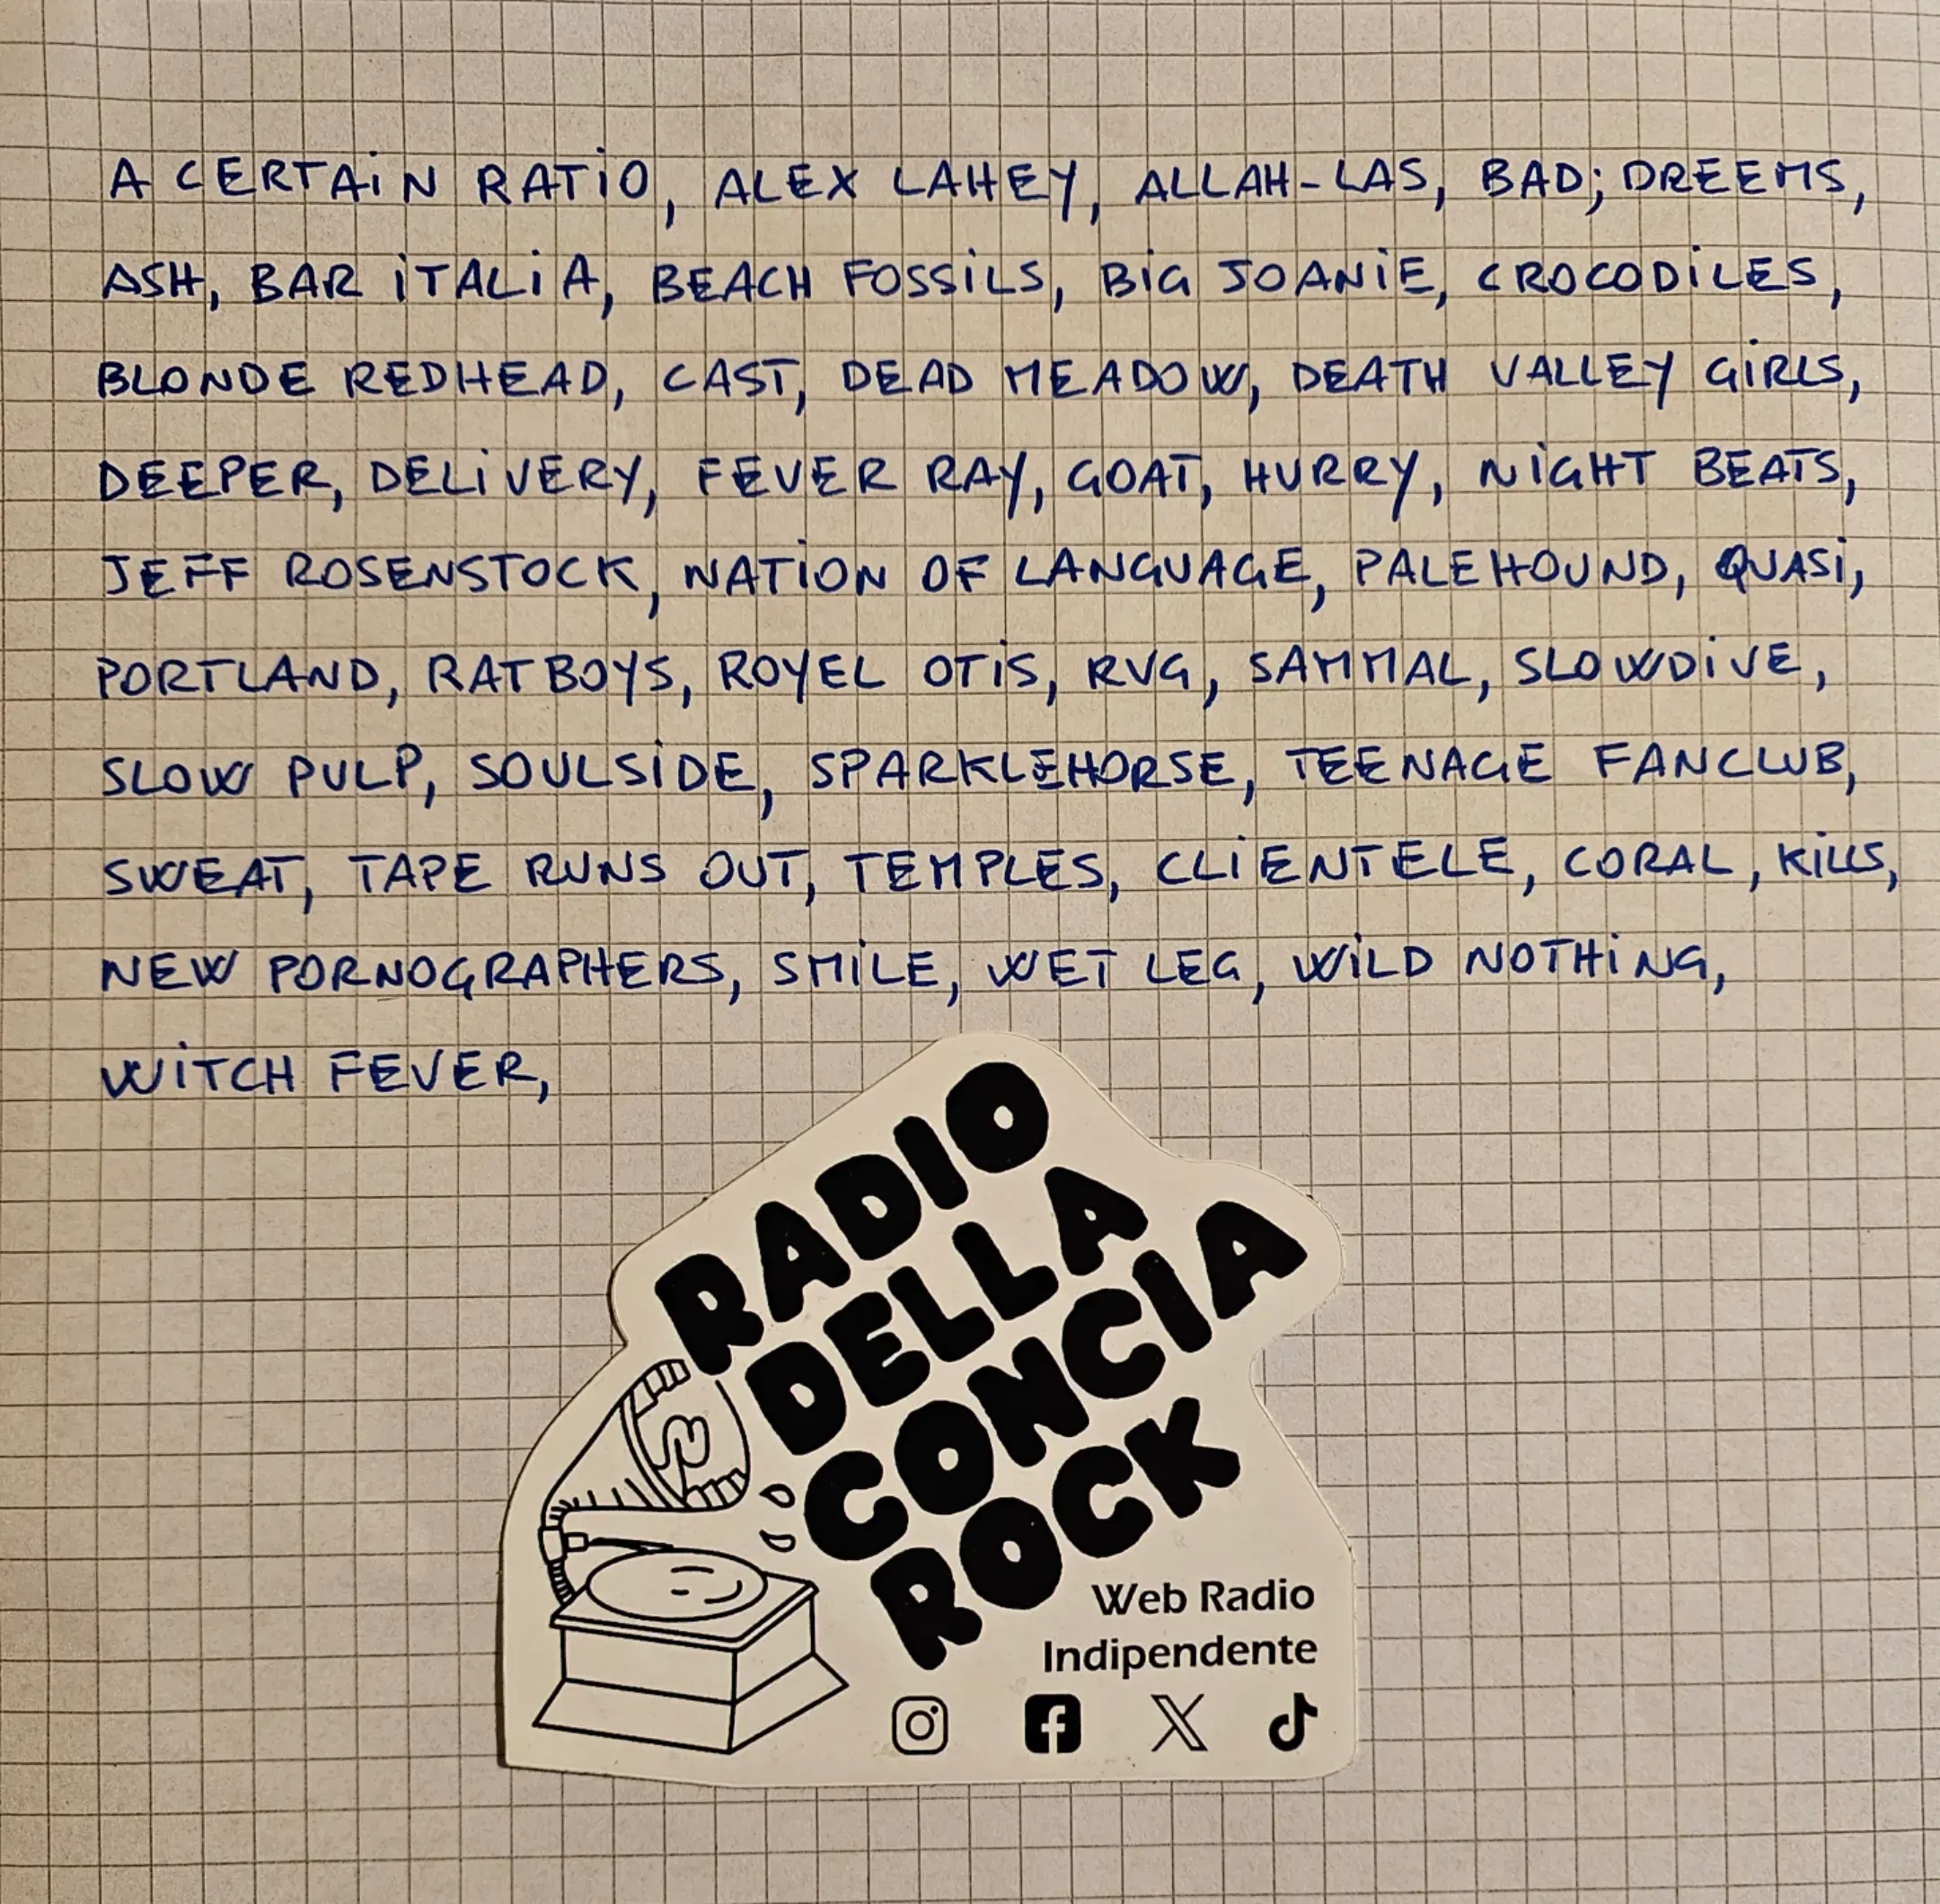 A CERTAIN RATIO, ALEX LAHEY, ALLAH-LAS, BAD;DREEMS,
ASH, BAR ITALIA, BEACH FOSSILS, BIG JOANIE, CROCODILES,
BLONDE REDHEAD, CAST, DEAD MEADOW, DEATH VALLEY GIRLS,
DEEPER, DELIVERY, FEVER RAY, GOAT, HURRY, NIGHT BEATS,
JEFF ROSENSTOCK, NATION OF LANGUAGE, PALEHOUND, QUASI,
PORTLAND, RATBOYS, ROYEL OTIS, RVG, SAMMAL, SLOWDIVE,
SLOW PULP, SOULSIDE, SPARKLEHORSE, TEENAGE FANCLUB,
SWEAT, TAPE RUNS OUT, TEMPLES, CLIENTELE, CORAL, KILLS,
NEW PORNOGRAPHERS, SMILE, WET LEG, WILD NOTHING,
WITCH FEVER,
RADIO
DELLA
CONCIA
ROCK
Web Radio
Indipendente